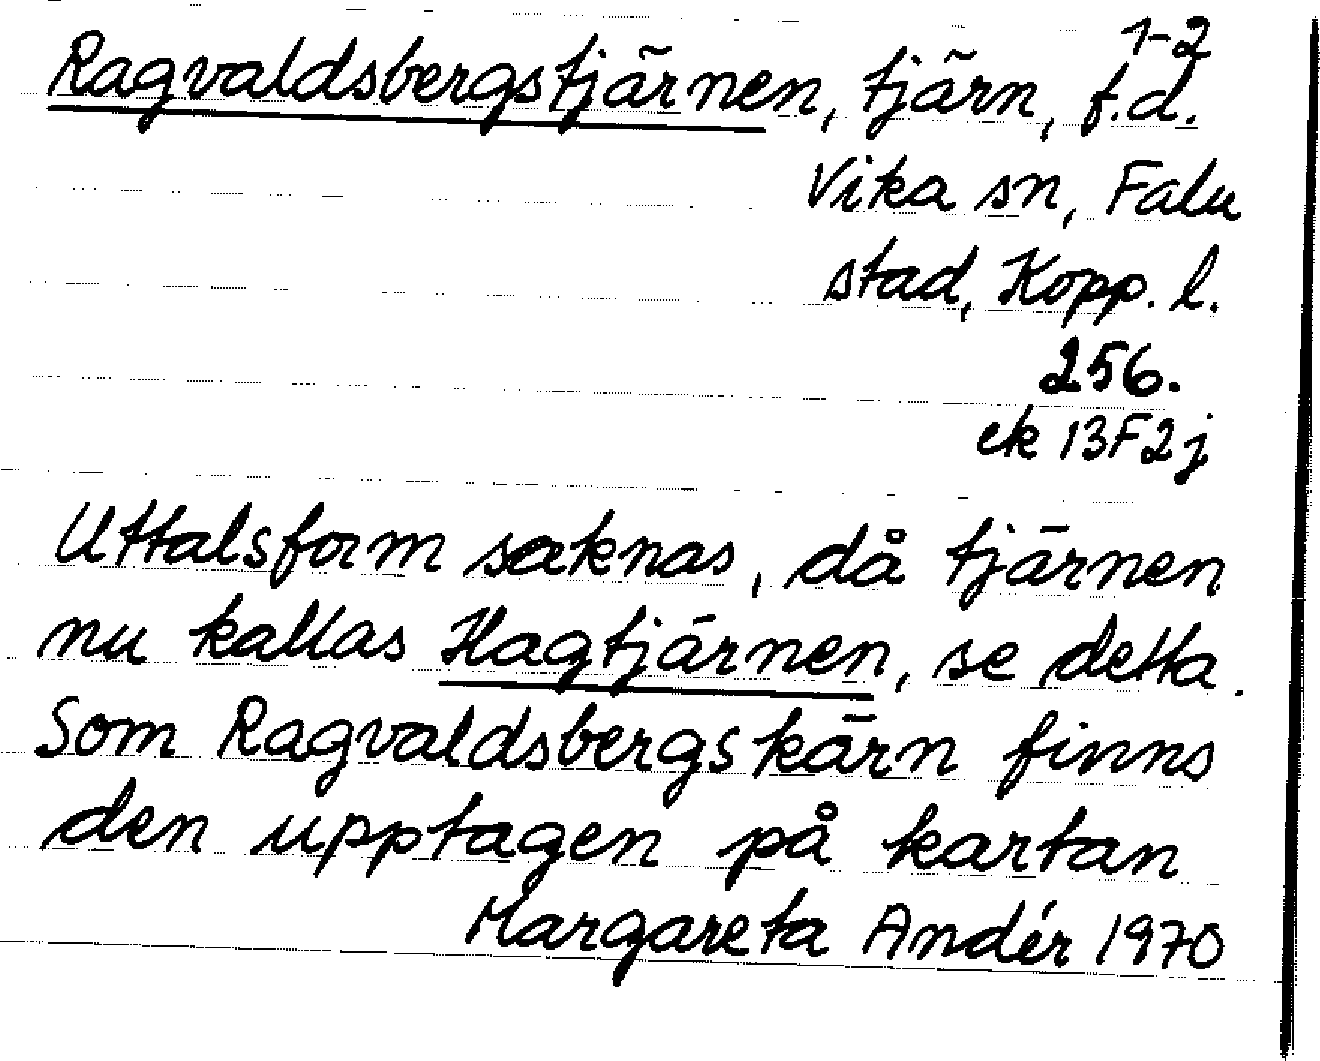 1-2
Ragvaldsbergstjärnen, tjärn, f.d.
Vika sn, Falu
stad, Kopp. l.
256.
ek 13F2j
Uttalsform saknas, då tjärnen
nu kallas Hagtjärnen, se detta.
Som Ragvaldsbergskärn finns
den upptagen på kartan
Margareta Andér 1970